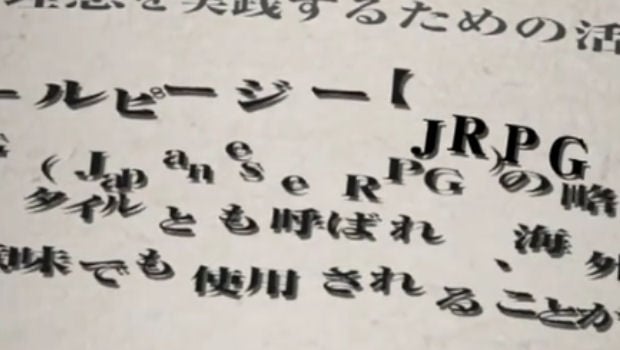 理想を実践するための活
ールピージー【JRPG
（Japanese RPG）の略
タイルとも呼ばれ、海外
味でも使用されることが